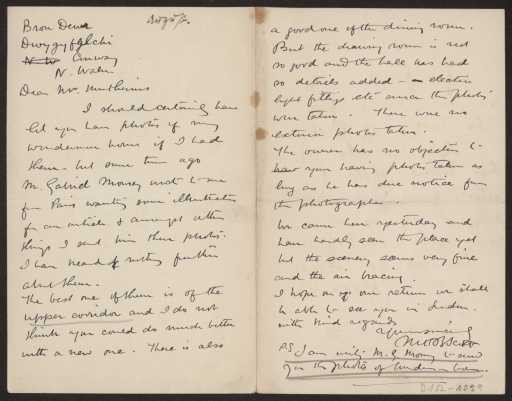 Bron Derw
Dwygyfylchi
N. W. Conway
N. Wales
Dear Mr. Muthesius
I should certainly have
let you have photos of my
Windermere house if I had
them - but some time ago
M. Gabriel Mourey wrote to me
for Paris wanting some illustrations
for an article & amongst other
things I sent him these photos.
I have heard nothing further
about them.
The best one of them is of the
upper corridor and I do not
think you could do much better
with a new one. There is also
a good one of the dining room.
But the drawing room is not
so good and the hall has had
so details added - electric
light fittings etc since the photos
were taken. There were no
exterior photos taken.
The owner has no objection to
your having photos taken as
long as he has due notice from
the photographer.
We came here yesterday and
have hardly seen the place yet
but the scenery seems very fine
and the air bracing.
I hope on our return we shall
be able to see you in London.
with kind regards
Yours sincerely
M H Baillie Scott
PS I am writing M. G. Mourey to send
you the photos of Windermere house.
D 102-4229